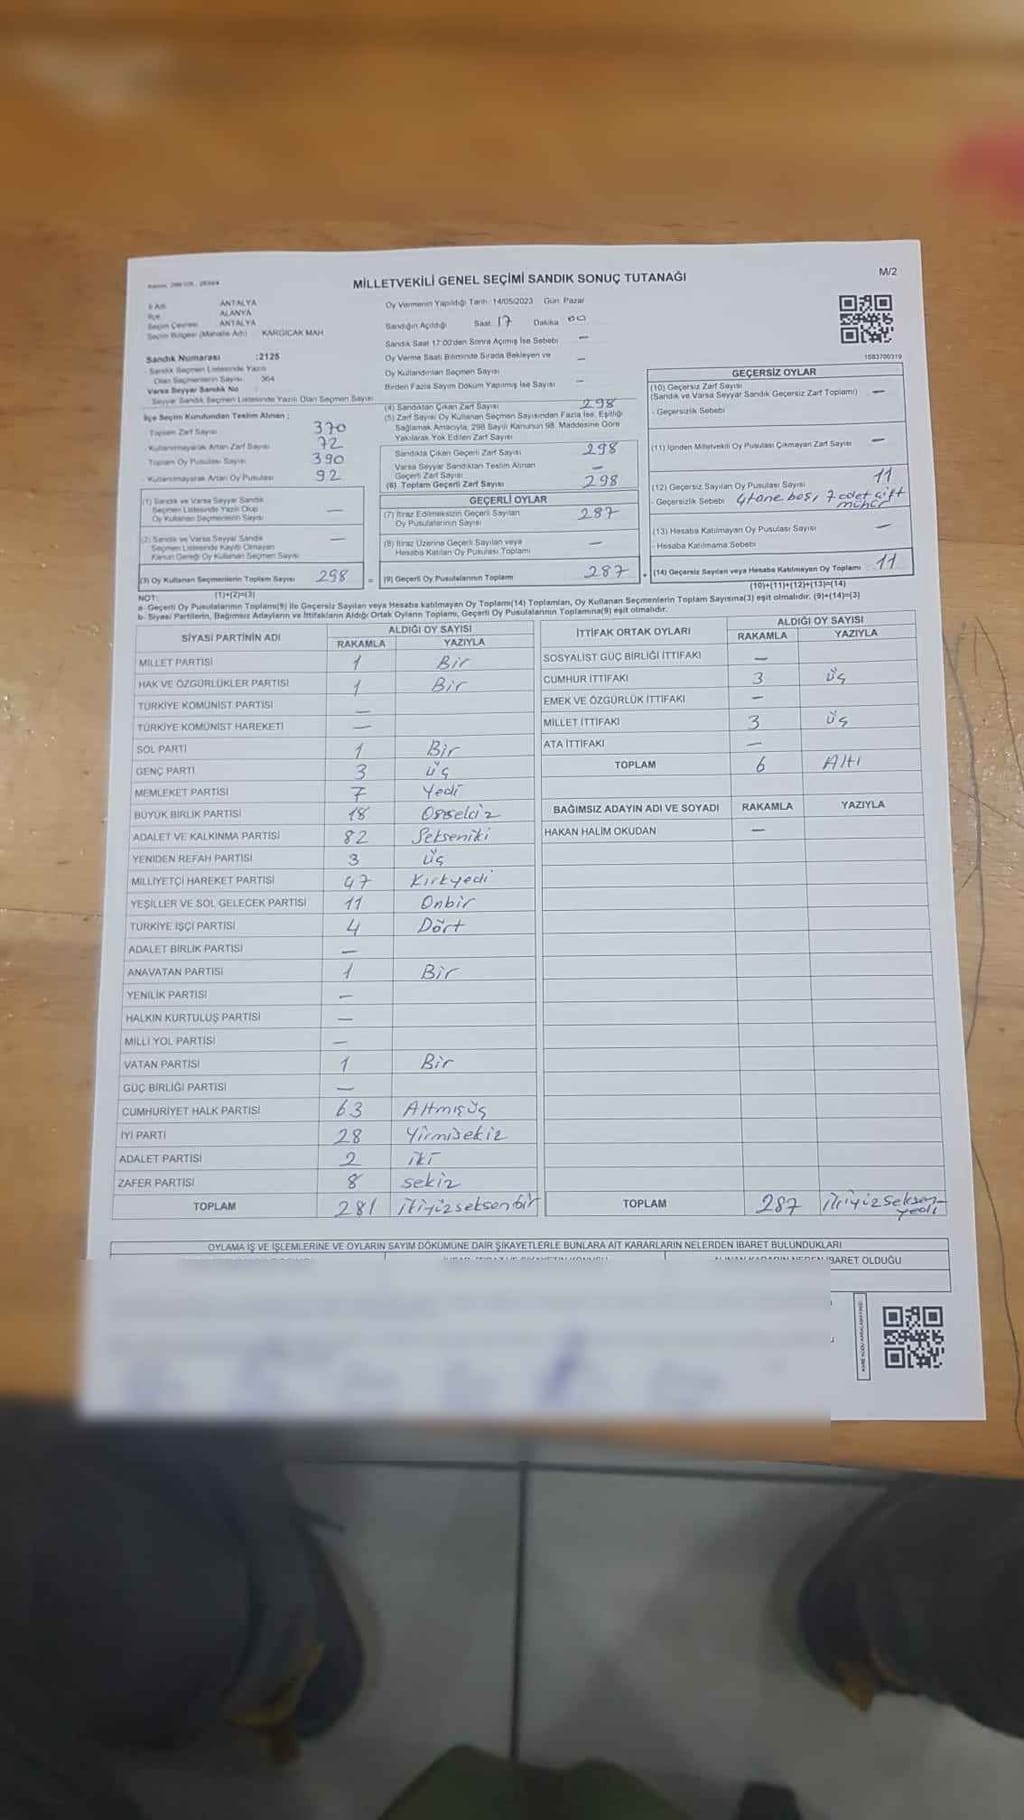 MİLLETVEKİLİ GENEL SEÇİMİ SANDIK SONUÇ TUTANAĞI
M/2
İl Adı ANTALYA
İlçe ALANYA
Seçim Çevresi ANTALYA
Seçim Bölgesi (Mahalle Adı) KARGICAK MAH
Sandık Numarası :2125
Sandık Seçmen Listesinde Yazılı
Olan Seçmenlerin Sayısı 364
Varsa Seyyar Sandık No
Seyyar Sandık Seçmen Listesinde Yazılı Olan Seçmen Sayısı
Oy Vermenin Yapıldığı Tarih 14/05/2023 Gün Pazar
Sandığın Açıldığı Saat 17 Dakika 00
Sandık Saat 17:00'den Sonra Açılmış İse Sebebi —
Oy Verme Saati Bitiminde Sırada Bekleyen ve
Oy Kullandırılan Seçmen Sayısı —
Birden Fazla Sayım Döküm Yapılmış İse Sayısı —
1583700319
İlçe Seçim Kurulundan Teslim Alınan ;
Toplam Zarf Sayısı 370
Kullanılmayarak Artan Zarf Sayısı 72
Toplam Oy Pusulası Sayısı 390
Kullanılmayarak Artan Oy Pusulası 92
(1) Sandık ve Varsa Seyyar Sandık
Seçmen Listesinde Yazılı Olup
Oy Kullanan Seçmenlerin Sayısı —
(2) Sandık ve Varsa Seyyar Sandık
Seçmen Listesinde Kayıtlı Olmayan
Kanun Gereği Oy Kullanan Seçmen Sayısı —
(3) Oy Kullanan Seçmenlerin Toplam Sayısı 298
(1)+(2)=(3)
(4) Sandıktan Çıkan Zarf Sayısı 298
(5) Zarf Sayısı Oy Kullanan Seçmen Sayısından Fazla İse, Eşitliği
Sağlamak Amacıyla, 298 Sayılı Kanunun 98. Maddesine Göre
Yakılarak Yok Edilen Zarf Sayısı
Sandıkta Çıkan Geçerli Zarf Sayısı 298
Varsa Seyyar Sandıktan Teslim Alınan
Geçerli Zarf Sayısı —
(6) Toplam Geçerli Zarf Sayısı 298
GEÇERLİ OYLAR
(7) İtiraz Edilmeksizin Geçerli Sayılan
Oy Pusulalarının Sayısı 287
(8) İtiraz Üzerine Geçerli Sayılan veya
Hesaba Katılan Oy Pusulası Toplamı —
= (9) Geçerli Oy Pusulalarının Toplamı 287
GEÇERSİZ OYLAR
(10) Geçersiz Zarf Sayısı
(Sandık ve Varsa Seyyar Sandık Geçersiz Zarf Toplamı) —
- Geçersizlik Sebebi
(11) İçinden Milletvekili Oy Pusulası Çıkmayan Zarf Sayısı —
(12) Geçersiz Sayılan Oy Pusulası Sayısı 11
- Geçersizlik Sebebi 4 tane boş, 7 adet çift
mühür
(13) Hesaba Katılmayan Oy Pusulası Sayısı —
- Hesaba Katılmama Sebebi
+ (14) Geçersiz Sayılan veya Hesaba Katılmayan Oy Toplamı 11
(10)+(11)+(12)+(13)=(14)
NOT:
a- Geçerli Oy Pusulalarının Toplamı(9) ile Geçersiz Sayılan veya Hesaba katılmayan Oy Toplamı(14) Toplamları, Oy Kullanan Seçmenlerin Toplam Sayısına(3) eşit olmalıdır. (9)+(14)=(3)
b- Siyasi Partilerin, Bağımsız Adayların ve İttifakların Aldığı Ortak Oyların Toplamı, Geçerli Oy Pusulalarının Toplamına(9) eşit olmalıdır.
SİYASİ PARTİNİN ADI ALDIĞI OY SAYISI
RAKAMLA YAZIYLA
MİLLET PARTİSİ 1 Bir
HAK VE ÖZGÜRLÜKLER PARTİSİ 1 Bir
TÜRKİYE KOMÜNİST PARTİSİ —
TÜRKİYE KOMÜNİST HAREKETİ —
SOL PARTİ 1 Bir
GENÇ PARTİ 3 üç
MEMLEKET PARTİSİ 7 Yedi
BÜYÜK BİRLİK PARTİSİ 18 Onsekiz
ADALET VE KALKINMA PARTİSİ 82 Sekseniki
YENİDEN REFAH PARTİSİ 3 üç
MİLLİYETÇİ HAREKET PARTİSİ 47 Kırkyedi
YEŞİLLER VE SOL GELECEK PARTİSİ 11 Onbir
TÜRKİYE İŞÇİ PARTİSİ 4 Dört
ADALET BİRLİK PARTİSİ —
ANAVATAN PARTİSİ 1 Bir
YENİLİK PARTİSİ —
HALKIN KURTULUŞ PARTİSİ —
MİLLİ YOL PARTİSİ —
VATAN PARTİSİ 1 Bir
GÜÇ BİRLİĞİ PARTİSİ —
CUMHURİYET HALK PARTİSİ 63 Altmışüç
İYİ PARTİ 28 Yirmisekiz
ADALET PARTİSİ 2 iki
ZAFER PARTİSİ 8 sekiz
TOPLAM 281 ikiyüzseksenbir
İTTİFAK ORTAK OYLARI ALDIĞI OY SAYISI
RAKAMLA YAZIYLA
SOSYALİST GÜÇ BİRLİĞİ İTTİFAKI —
CUMHUR İTTİFAKI 3 üç
EMEK VE ÖZGÜRLÜK İTTİFAKI —
MİLLET İTTİFAKI 3 üç
ATA İTTİFAKI —
TOPLAM 6 Altı
BAĞIMSIZ ADAYIN ADI VE SOYADI RAKAMLA YAZIYLA
HAKAN HALİM OKUDAN —
TOPLAM 287 ikiyüzseksen-
yedi
OYLAMA İŞ VE İŞLEMLERİNE VE OYLARIN SAYIM DÖKÜMÜNE DAİR ŞİKAYETLERLE BUNLARA AİT KARARLARIN NELERDEN İBARET BULUNDUKLARI
İBARET OLDUĞU